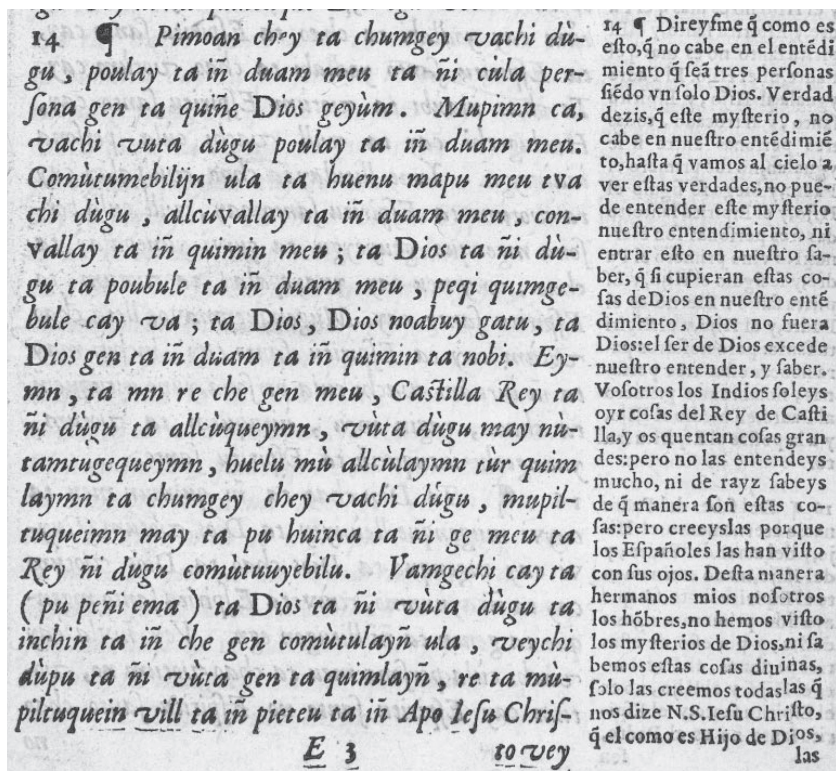 14 ¶ Pimoan chey ta chumgey vachi dù-
gu, poulay ta iñ duam meu ta ñi cùla per-
ſona gen ta quiñe Dios geyùm. Mupimn ca,
vachi vuta dùgu poulay ta iñ duam meu.
Comùtumebilijn ula ta huenu mapu meu tva
chi dùgu, allcùvallay ta iñ duam meu, con-
vallay ta iñ quimin meu; ta Dios ta ñi dù-
gu ta poubule ta iñ duam meu, peqi quimge-
bule cay va; ta Dios, Dios noabuy gatu, ta
Dios gen ta iñ duam ta iñ quimin ta nobi. Ey-
mn, ta mn re che gen meu, Caſtilla Rey ta
ñi dùgu ta allcùqueymn, vùta dùgu may nù-
tamtugequeymn, huelu mù allcùlaymn tùr quim
laymn ta chumgey chey vachi dùgu, mupil-
tuqueimn may ta pu huinca ta ñi ge meu ta
Rey ñi dùgu comùtuuyebilu. Vamgechi cay ta
(pu peñi ema) ta Dios ta ñi vùta dùgu ta
inchin ta iñ che gen comùtulayñ ula, veychi
dùpu ta ñi vùta gen ta quimlayñ, re ta mù-
piltuquein vill ta iñ pieteu ta iñ Apo Ieſu Chriſ-
E 3 to vey
14 ¶ Direyſme q̃ como es
eſto,q̃ no cabe en el entẽdi
miento q̃ ſeã tres perſonas
ſiẽdo vn ſolo Dios. Verdad
dezis,q̃ eſte myſterio, no
cabe en nueſtro entẽdimiẽ
to,haſta q̃ vamos al cielo a
ver eſtas verdades,no pue-
de entender eſte myſterio
nueſtro entendimiento, ni
entrar eſto en nueſtro ſa-
ber, q̃ ſi cupieran eſtas co-
ſas deDios en nueſtro entẽ
dimiento, Dios no fuera
Dios:el ſer de Dios excede
nueſtro entender, y ſaber.
Voſotros los Indios ſoleys
oyr coſas del Rey de Caſti
lla,y os quentan coſas gran
des:pero no las entendeys
mucho, ni de rayz ſabeys
de q̃ manera ſon eſtas co-
ſas:pero creeyslas porque
los Eſpañoles las han viſto
con ſus ojos. Deſta manera
hermanos mios noſotros
los hõbres,no hemos viſto
los myſterios de Dios,ni ſa
bemos eſtas coſas diuinas,
ſolo las creemos todas las q̃
nos dize N.S.Ieſu Chriſto,
q̃ el como es Hijo de Dios,
las